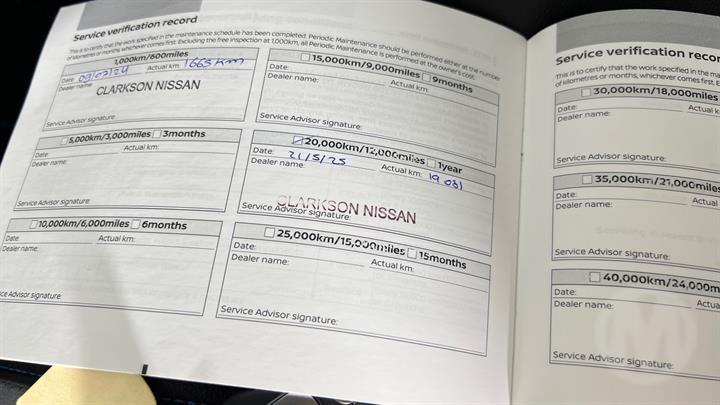 Service verification record
This is to certify that the work specified in the maintenance schedule has been completed. Periodic Maintenance should be performed either at the number
of kilometres or months, whichever comes first. Excluding the free inspection at 1,000km, all Periodic Maintenance is performed at the owner's cost.
1,000km/600miles
Date: 09/07/24 Actual km: 1663 km
Dealer name:
CLARKSON NISSAN
Service Advisor signature:
5,000km/3,000miles 3months
Date: Actual km:
Dealer name:
Service Advisor signature:
10,000km/6,000miles 6months
Date: Actual km:
Dealer name:
Service Advisor signature:
15,000km/9,000miles 9months
Date: Actual km:
Dealer name:
Service Advisor signature:
20,000km/12,000miles 1year
Date: 21/5/25 Actual km: 19 031
Dealer name:
CLARKSON NISSAN
Service Advisor signature:
25,000km/15,000miles 15months
Date: Actual km:
Dealer name:
Service Advisor signature:
Service verification recor
This is to certify that the work specified in the ma
of kilometres or months, whichever comes first. E
30,000km/18,000miles
Date: Actual k
Dealer name:
Service Advisor signature:
35,000km/21,000miles
Date: Actual
Dealer name:
Service Advisor signature:
40,000km/24,000m
Date: Actua
Dealer name:
Service Advisor signature: